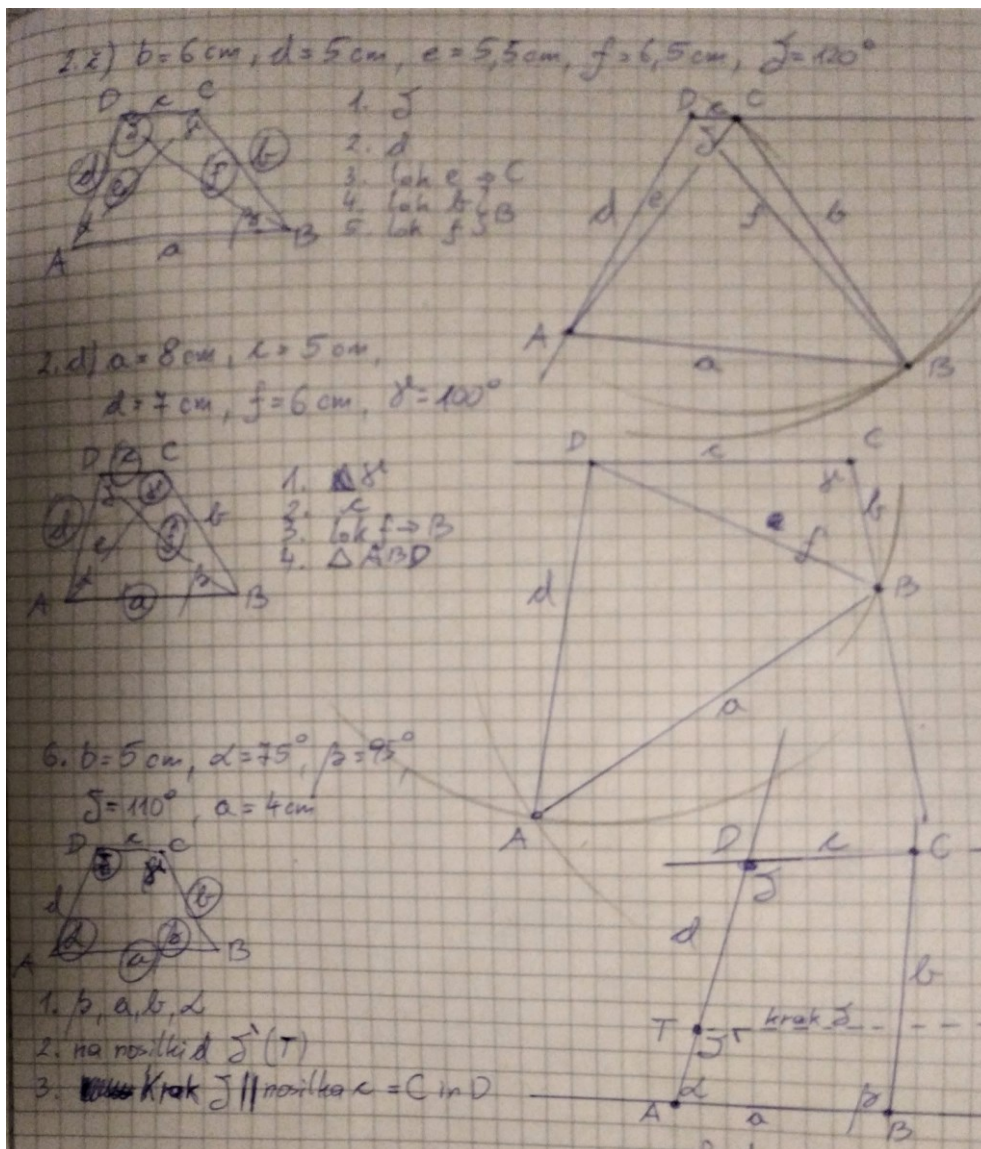 2.č) b=6 cm, d=5 cm, e=5,5 cm, f=6,5 cm, δ=120°
D c C
δ γ
d e f b
α β
A a B
1. δ
2. d
3. lok e → C
4. lok b } B
5. lok f
D c C
δ
d e f b
A a B
2.d) a=8 cm, c=5 cm,
d=7 cm, f=6 cm, γ=100°
D c C
δ γ
d e f b
α β
A a B
1. γ
2. c
3. lok f → B
4. △ABD
D c C
γ b
f
d B
a
A
6. b=5 cm, α=75°, β=95°,
δ=110°, a=4 cm
D c C
δ γ
d b
α β
A a B
1. β, a, b, α
2. na nosilki d δ' (T)
3. Krak δ || nosilka c = C in D
D c C
δ
d b
T δ' krak δ
α β
A a B